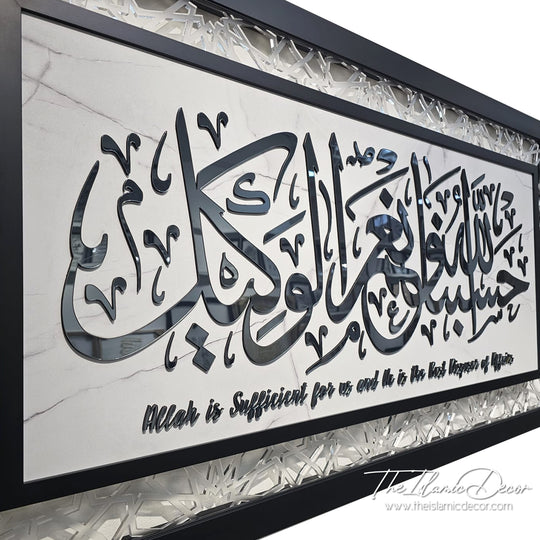 حسبنا الله ونعم الوكيل
Allah is Sufficient for us and He is The Best Disposer of Affairs
TheIslamicDecor
www.theislamicdecor.com